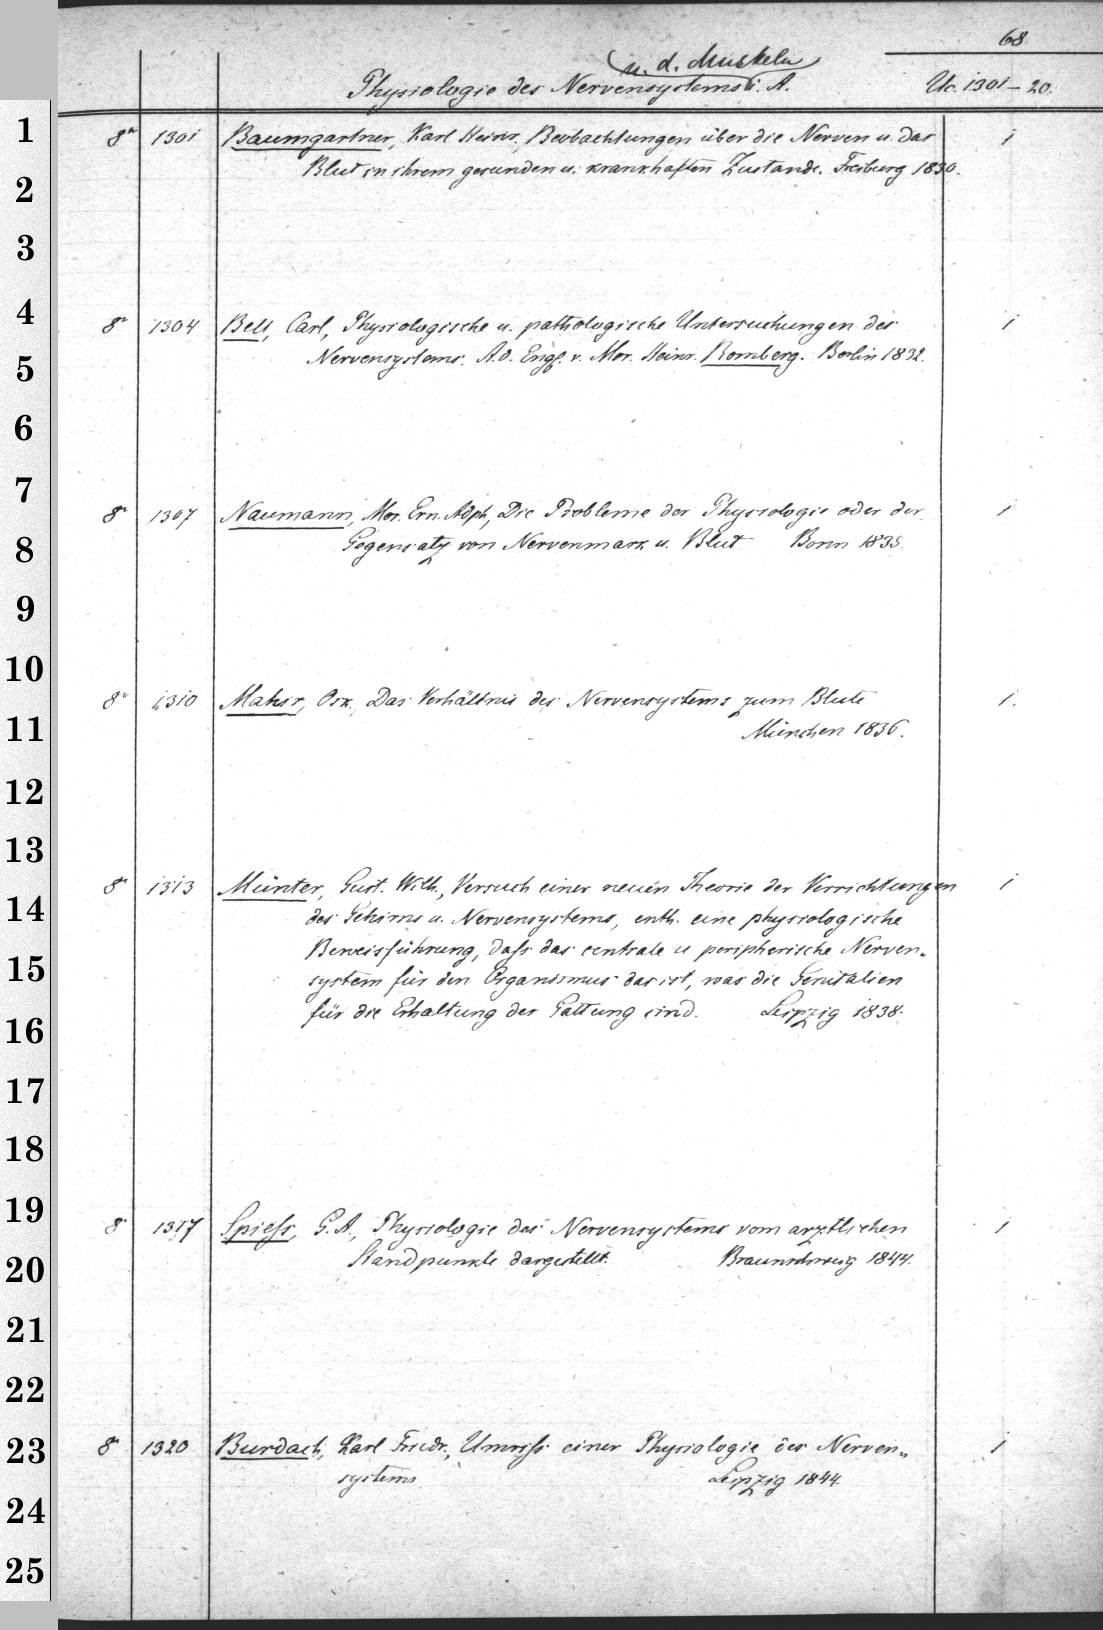 68
u. d. Muskeln
Physiologie des Nervensystems i. A.
Uc. 1301 – 20.
1
8° 1301 Baumgartner, Karl Heinr., Beobachtungen über die Nerven u. das 1
Blut in ihrem gesunden u. krankhaften Zustande. Freiburg 1830.
2
3
4
8° 1304 Bell, Carl, Physiologische u. pathologische Untersuchungen des 1
5
Nervensystems. A. d. Engl. v. Mor. Heinr. Romberg. Berlin 1832.
6
7
8° 1307 Naumann, Mor. Ern. Adph, Die Probleme der Physiologie oder der 1
8
Gegensatz von Nervenmark u. Blut Bonn 1835.
9
10
8° 1310 Das Verhältnis des Nervensystems zum Blute 1.
11
München 1836.
12
13
8° 1313 Münter, Gust. Wilh., Versuch einer neuen Theorie der Verrichtungen 1
14
des Gehirns u. Nervensystems, enth. eine physiologische
Beweisführung, dafs das centrale u peripherische Nerven-
15
system für den Organismus das ist, was die Genitalien
für die Erhaltung der Gattung sind. Leipzig 1838.
16
17
18
19
8° 1317 Spiefs, G. A., Physiologie des Nervensystems vom ärztlichen 1
20
Standpunkte dargestellt. Braunschweig 1844.
21
22
23
8° 1320 Burdach, Karl Friedr., Umrifs einer Physiologie des Nerven- 1
systems Leipzig 1844.
24
25